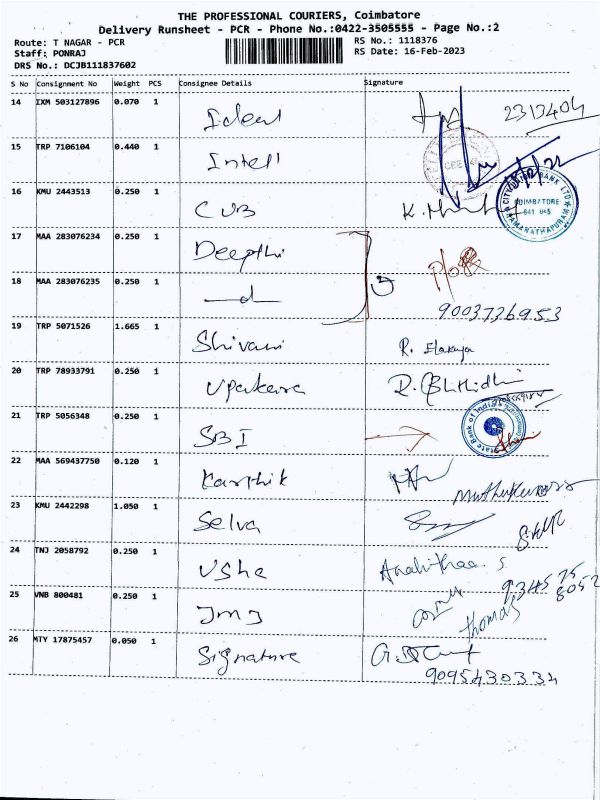 THE PROFESSIONAL COURIERS, Coimbatore
Delivery Runsheet - PCR - Phone No.:0422-3505555 - Page No.:2
Route: T NAGAR - PCR
RS No.: 1118376
Staff: PONRAJ
RS Date: 16-Feb-2023
DRS No.: DCJB111837602
S No Consignment No Weight PCS Consignee Details Signature
14 IXM 503127896 0.070 1 Ideal 2313404
15 TRP 7106104 0.440 1 Intell
16 KMU 2443513 0.250 1 CUB
CITY UNION BANK LTD
COIMBATORE
641 045
RAMANATHAPURAM
17 MAA 283076234 0.250 1 Deepthi
18 MAA 283076235 0.250 1
9003736953
19 TRP 5071526 1.665 1 Shivani R. Elakya
20 TRP 78933791 0.250 1 Upakara
21 TRP 5056348 0.250 1 SBI
State Bank of India
22 MAA 569437750 0.120 1 Karthik
Muthukumar
23 KMU 2442298 1.050 1 Selva
24 TNJ 2058792 0.250 1 Usha
25 VNB 800481 0.250 1 Jmj Thomas
26 MTY 17875457 0.050 1 Signature
9095430334